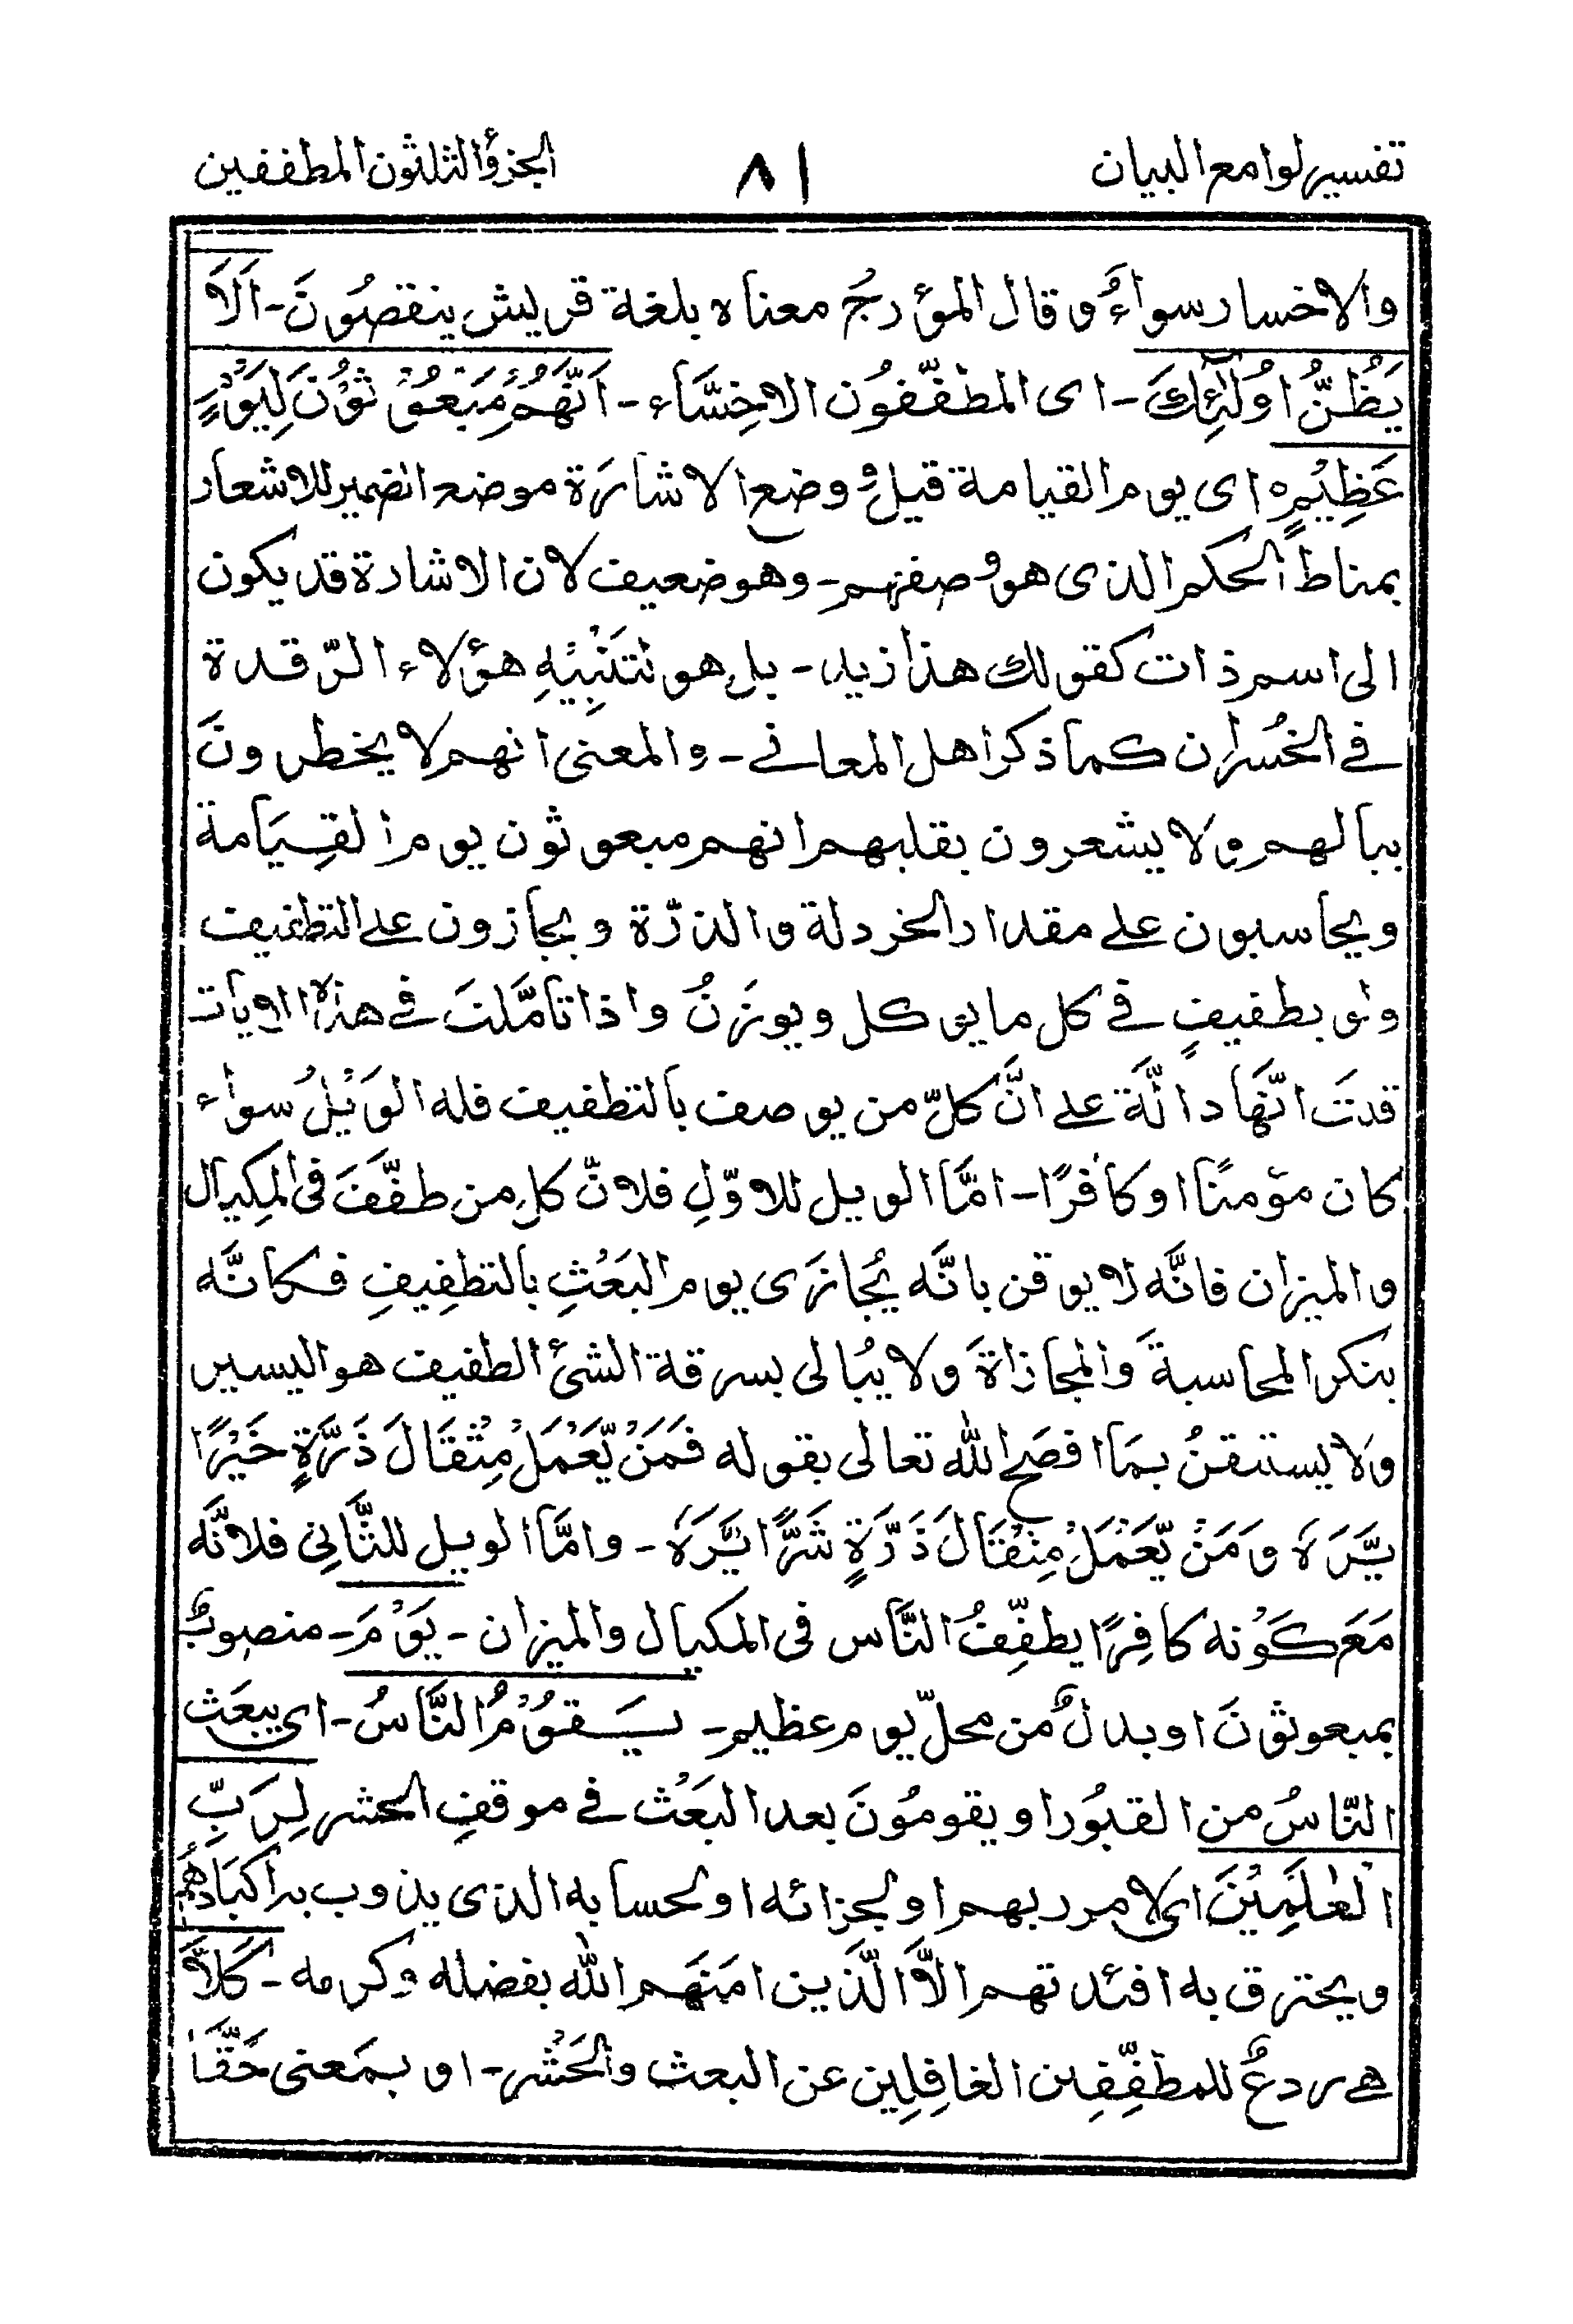 تفسير لوامع البيان ٨١ الجزؤ الثلثون المطففين
والاخسار سواءٌ وقال المؤرجُ معناه بلغة قريش ينقصُونَ - اَلَا
يَظُنُّ اُولٰٓئِكَ - اى المطفّفُون الاخِسَّاء - اَنَّهُمْ مَّبْعُوْثُوْنَ لِيَوْمٍ
عَظِيْمٍ ه اى يوم القيامة قيل وُضع الاشارة موضع الضمير للاشعار
بمناط الحكم الذى هو وصفهم - وهو ضعيف لان الاشارة قد يكون
الى اسم ذات كقولك هذا زيد - بل هو لتَنْبِيْهِ هؤلاء الرّقدة
فى الخُسران كما ذكر اهل المعانى - والمعنى انهم لا يخطرونَ
ببالهم ولا يشعرون بقلبهم انهم مبعوثون يوم القِيَامة
ويحاسبون على مقدار الخردلة والذرّة ويجازون على التطفيف
ولو بطفيفٍ فى كل ما يوكل ويوزنُ واذا تاَمَّلتَ فى هذه الاٰيات
قدتَ انَّهَا دالَّة على انَّ كلّ من يوصف بالتطفيف فله الوَيْلُ سواء
كان مؤمنًا او كافرًا - امَّا الويل للاوّلِ فلانّ كل من طفَّفَ فى المِكيال
والميزان فانَّه لا يوقن بانَّه يُجَازَى يوم البَعْثِ بالتطفِيفِ فكانَّه
ينكر المحاسبةَ والمجازاةَ ولا يبُالى بسرقة الشئ الطفيف هو اليسير
ولا يستنقنُ بمَا افصَح الله تعالى بقوله فَمَنْ يَّعْمَلْ مِثْقَالَ ذَرَّةٍ خَيْرًا
يَّرَهُ وَمَنْ يَّعْمَلْ مِثْقَالَ ذَرَّةٍ شَرًّا يَّرَهُ - وامَّا الويل للثَّانِى فلانَّه
مَعَ كَوْنه كافِرًا يطفِّفُ النَّاس فى المكيال والميزان - يَوْمَ - منصوبٌ
بمبعوثونَ او بدلٌ من محلّ يوم عظيم - يَقُوْمُ النَّاسُ - اى يبعَث
النّاسُ من القبُور او يقومُونَ بعد البَعْث فى موقفِ الحشر لِرَبِّ
الْعٰلَمِيْنَ اى لامر ربهم او لجزائه او لحسابه الذى يذوب به اكبَادهُم
ويحترق به افئدتهم الَّا الَّذين امَنَهم الله بفضله وكرمه - كَلَّا
هى ردعٌ للمطفِّفِين الغافِلِين عن البعث والحَشْر - او بمَعنى حَقَّا